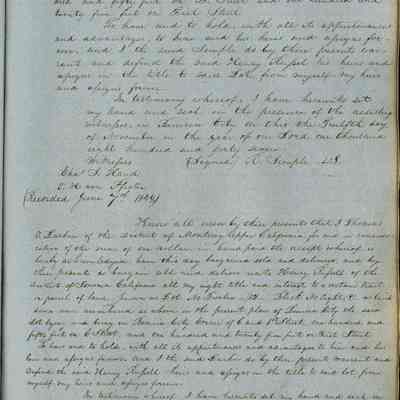 and fifty feet on D Street and one hundred and
twenty five feet on First Street.
To have and to hold, with all its appurtenances
and advantages to him and his heirs and assigns for-
ever, and I the said Semple do by these presents war-
rant and defend the said Henry his heirs and
assigns in the title to said Lot, from myself my heirs
and assigns forever.
In testimony whereof, I have hereunto set
my hand and seal in the presence of the
witnesses, in Benicia City on this the Twelfth day
of November in the year of our Lord one thousand
eight hundred and forty seven.
Witnesses (Signed) R. Semple LS.
Chas. S. Hand
E. H. von Pfister
(Recorded June 7th
Know all men by these presents that I Thomas
O. Larkin of the District of Monterey Upper California, for and in conside-
ration of the sum of one dollar in hand paid the receipt whereof is
hereby acknowledged have this day bargained sold and delivered and by
these presents do bargain sell and deliver unto Henry of the
District of Sonoma California all my right title and interest to a certain tract
or parcel of land, known as Lot No. Twelve Block No. Eight, as laid
down and numbered as shown in the present plan of Benicia City the said
lot lying and being in Benicia City Corner of C and 1st Street, one hundred and
fifty feet on C Street and one hundred and twenty five feet on First Street.
To have and to hold, with all its appurtenances and advantages to him and his
heirs and assigns forever. And I the said Larkin do by these presents warrant and
defend the said Henry heirs and assigns in the title to said lot from
myself my heirs and assigns forever.
In testimony whereof I have hereunto set my hand and seal in